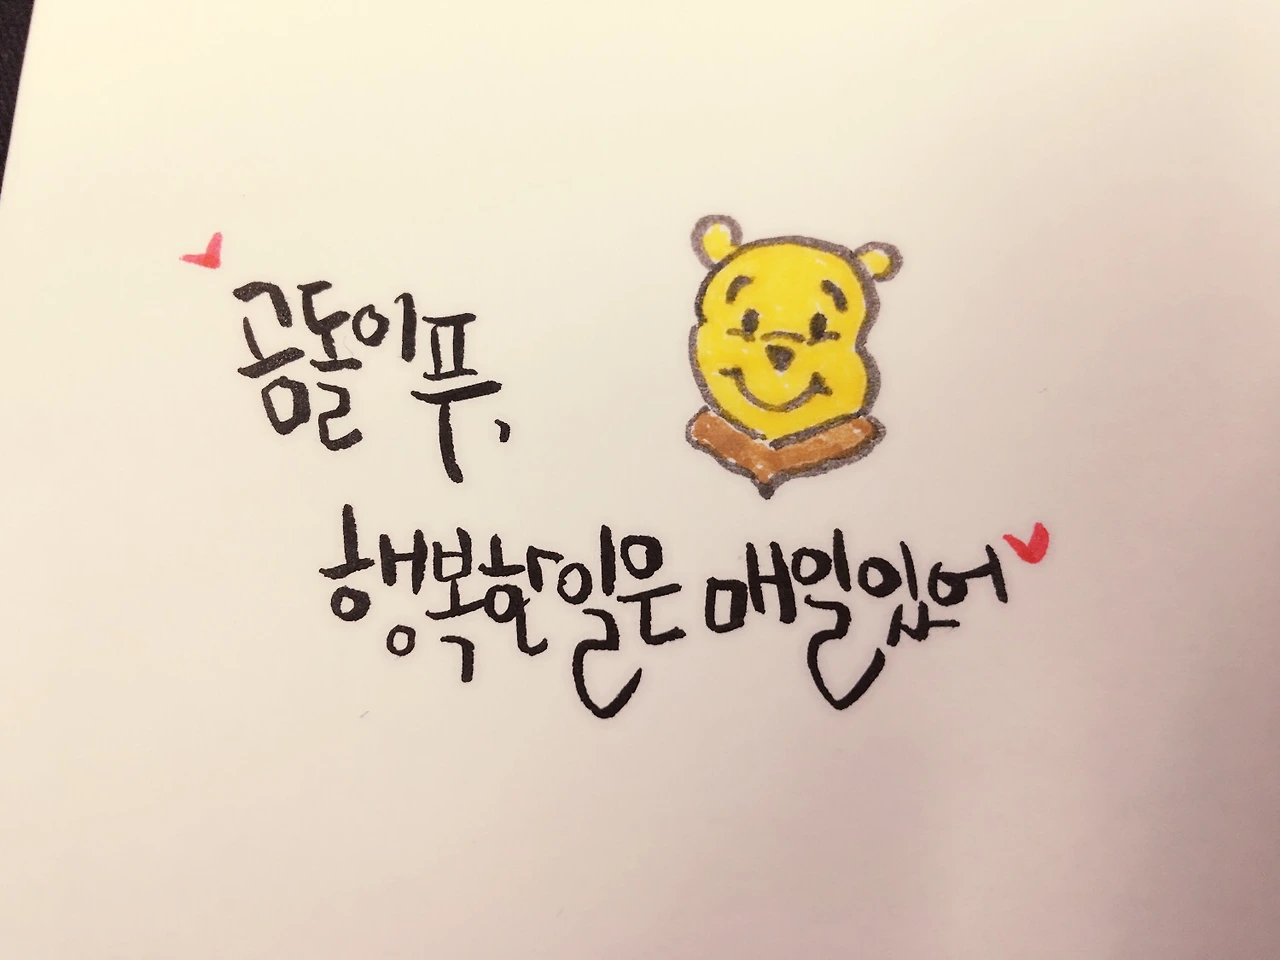 곰돌이 푸,
행복한 일은 매일 있어